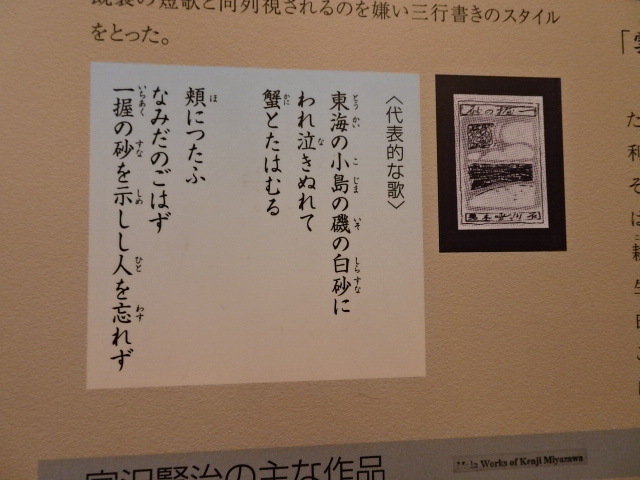 既製の短歌と同列視されるのを嫌い三行書きのスタイル
をとった。
〈代表的な歌〉
東海の小島の磯の白砂に
とうかい こじま いそ しらすな
われ泣きぬれて
な
蟹とたはむる
かに
頬につたふ
ほ
なみだのごはず
一握の砂を示しし人を忘れず
いちあく すな しめ ひと わす
宮沢賢治の主な作品
Works of Kenji Miyazawa